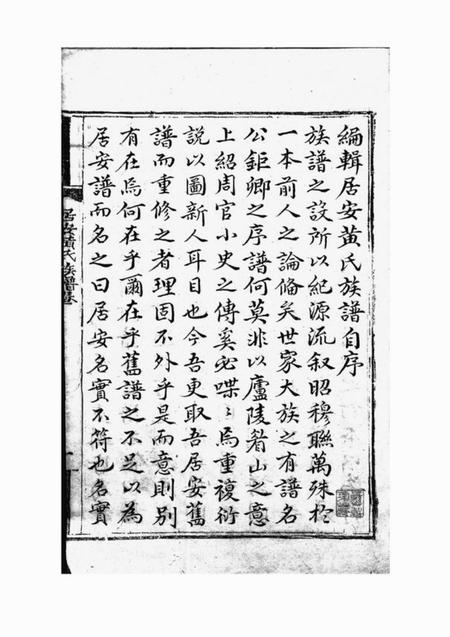 編輯居安黃氏族譜自序
族譜之設所以紀源流叙昭穆聯萬殊於
一本前人之論俻矣世家大族之有譜名
公鉅卿之序譜何莫非以廬陵眉山之意
上紹周官小史之傳奚必喋〻焉重複衍
說以圖新人耳目也今吾更取吾居安舊
譜而重修之者理固不外乎是而意則別
有在焉何在乎爾在乎舊譜之不足以為
居安譜而名之曰居安名實不符也名實
居安黃氏族譜卷